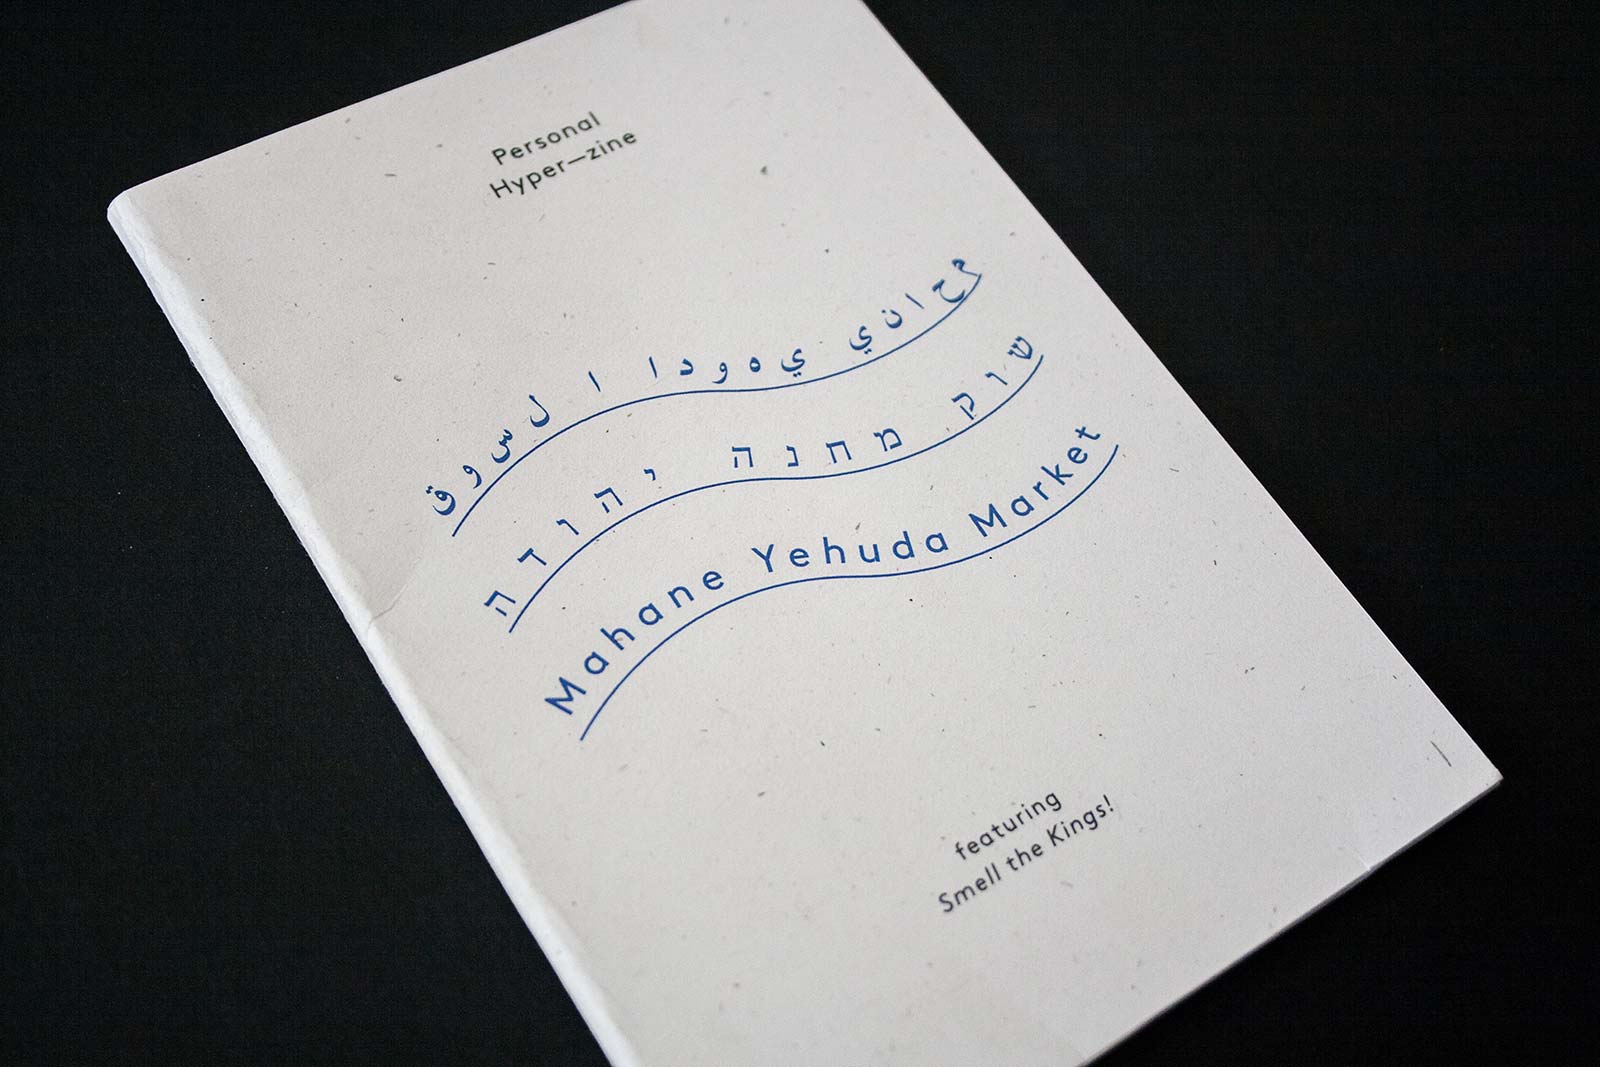 Personal
Hyper—zine
محاني يهودا السوق
שוק מחנה יהודה
Mahane Yehuda Market
featuring
Smell the Kings!